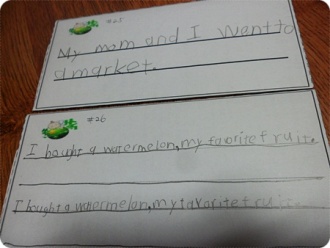 #25
My mom and I went to
a market.
#26
I bought a watermelon, my favorite fruit.
I bought a watermelon, my favorite fruit.